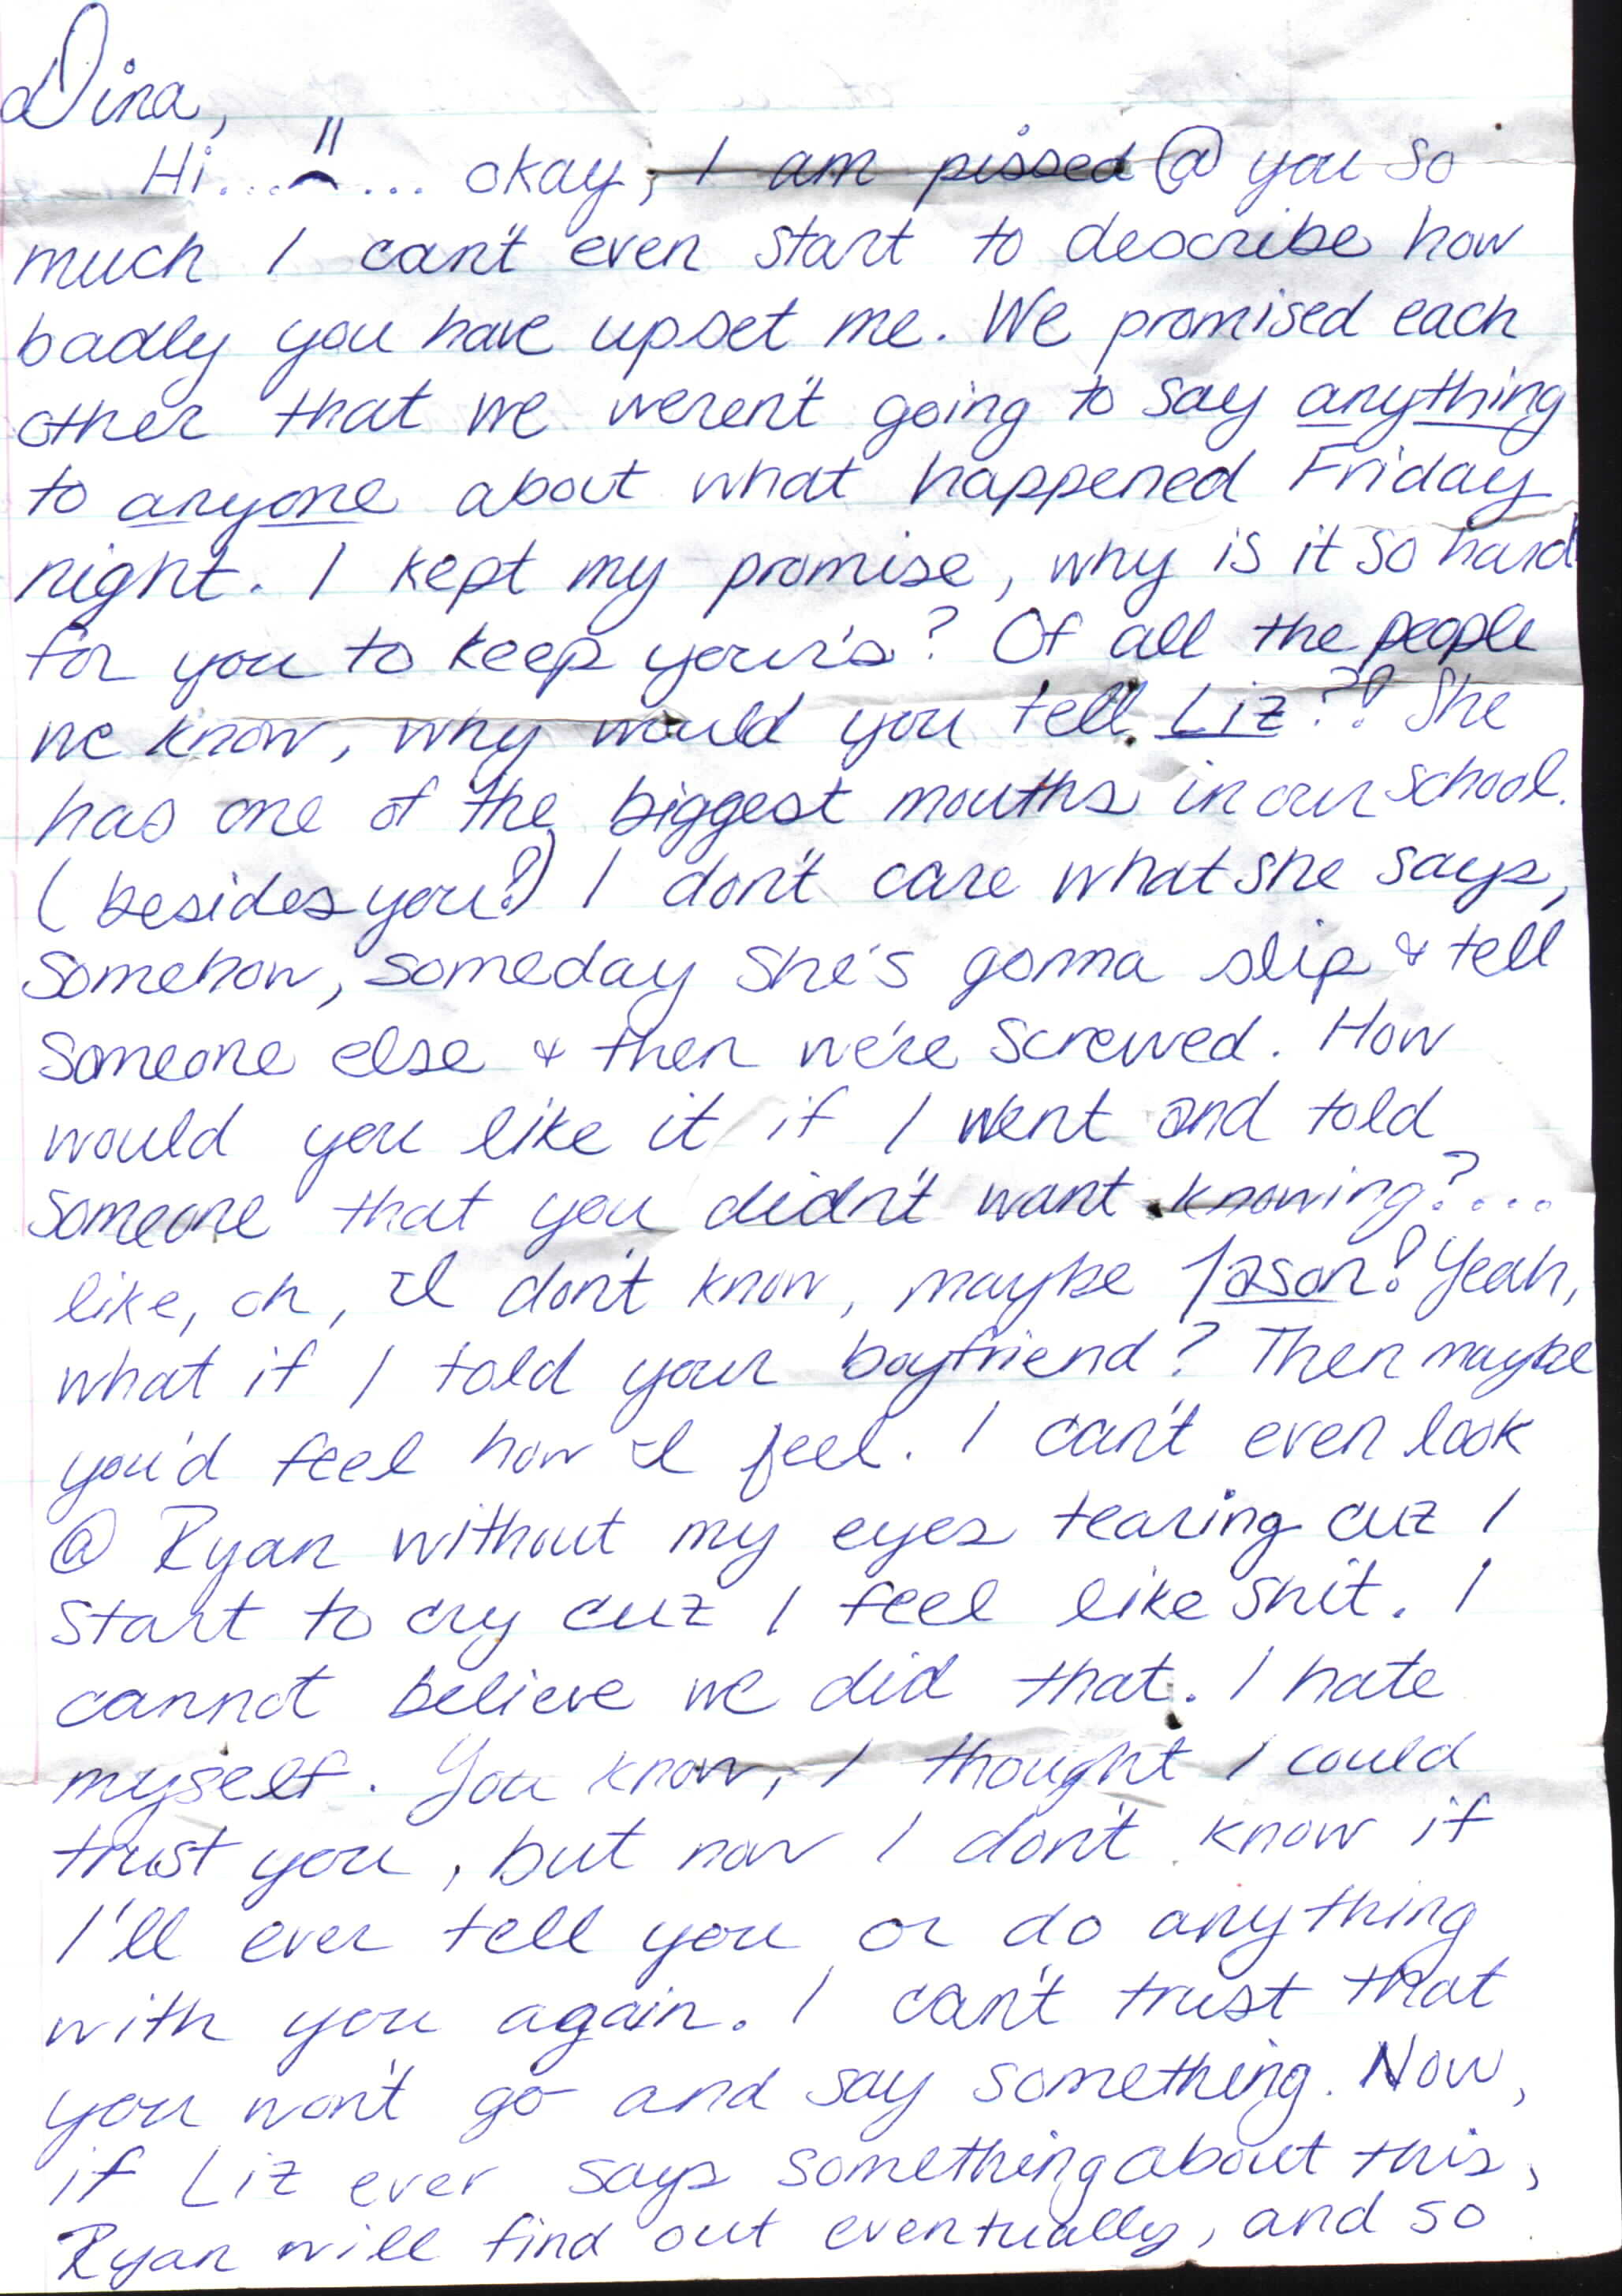 Dina,
Hi... ... okay, I am pissed @ you so
much I can't even start to describe how
badly you have upset me. We promised each
other that we weren't going to say anything
to anyone about what happened Friday
night. I kept my promise, why is it so hard
for you to keep your's? Of all the people
we know, why would you tell Liz?! She
has one of the biggest mouths in our school.
(besides you!) I don't care what she says,
somehow, someday she's gonna slip & tell
someone else & then we're screwed. How
would you like it if I went and told
someone that you didn't want knowing?...
like, oh, I don't know, maybe Jason! Yeah,
what if I told your boyfriend? Then maybe
you'd feel how I feel. I can't even look
@ Ryan without my eyes tearing cuz I
start to cry cuz I feel like shit. I
cannot believe we did that. I hate
myself. You know, I thought I could
trust you, but now I don't know if
I'll ever tell you or do anything
with you again. I can't trust that
you won't go and say something. Now,
if Liz ever says something about this,
Ryan will find out eventually, and so